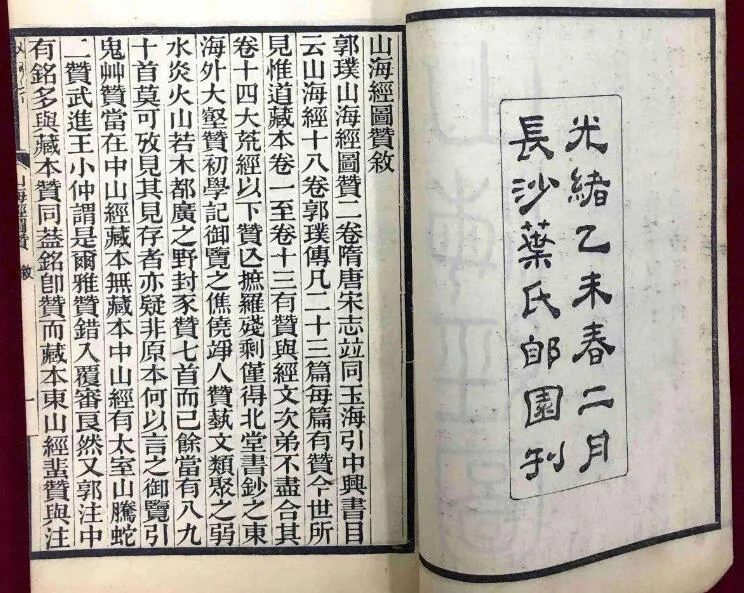 光緒乙未春二月
長沙葉氏郋園刊
山海經圖贊敘
郭璞山海經圖贊二卷隋唐宋志竝同玉海引中興書目
云山海經十八卷郭璞傳凡二十三篇每篇有贊今世所
見惟道藏本卷一至卷十三有贊與經文次弟不盡合其
卷十四大荒經以下贊亾摭羅殘剩僅得北堂書鈔之東
海外大壑贊初學記御覽之僬僥竫人贊埶文類聚之弱
水炎火山若木都廣之野封豕贊七首而已餘當有八九
十首莫可攷見其見存者亦疑非原本何以言之御覽引
鬼艸贊當在中山經藏本無藏本中山經有太室山騰蛇
二贊武進王小仲謂是爾雅贊錯入覆審良然又郭注中
有銘多與藏本贊同葢銘卽贊而藏本東山經蜚贊與注
山海經圖贊 敘 一